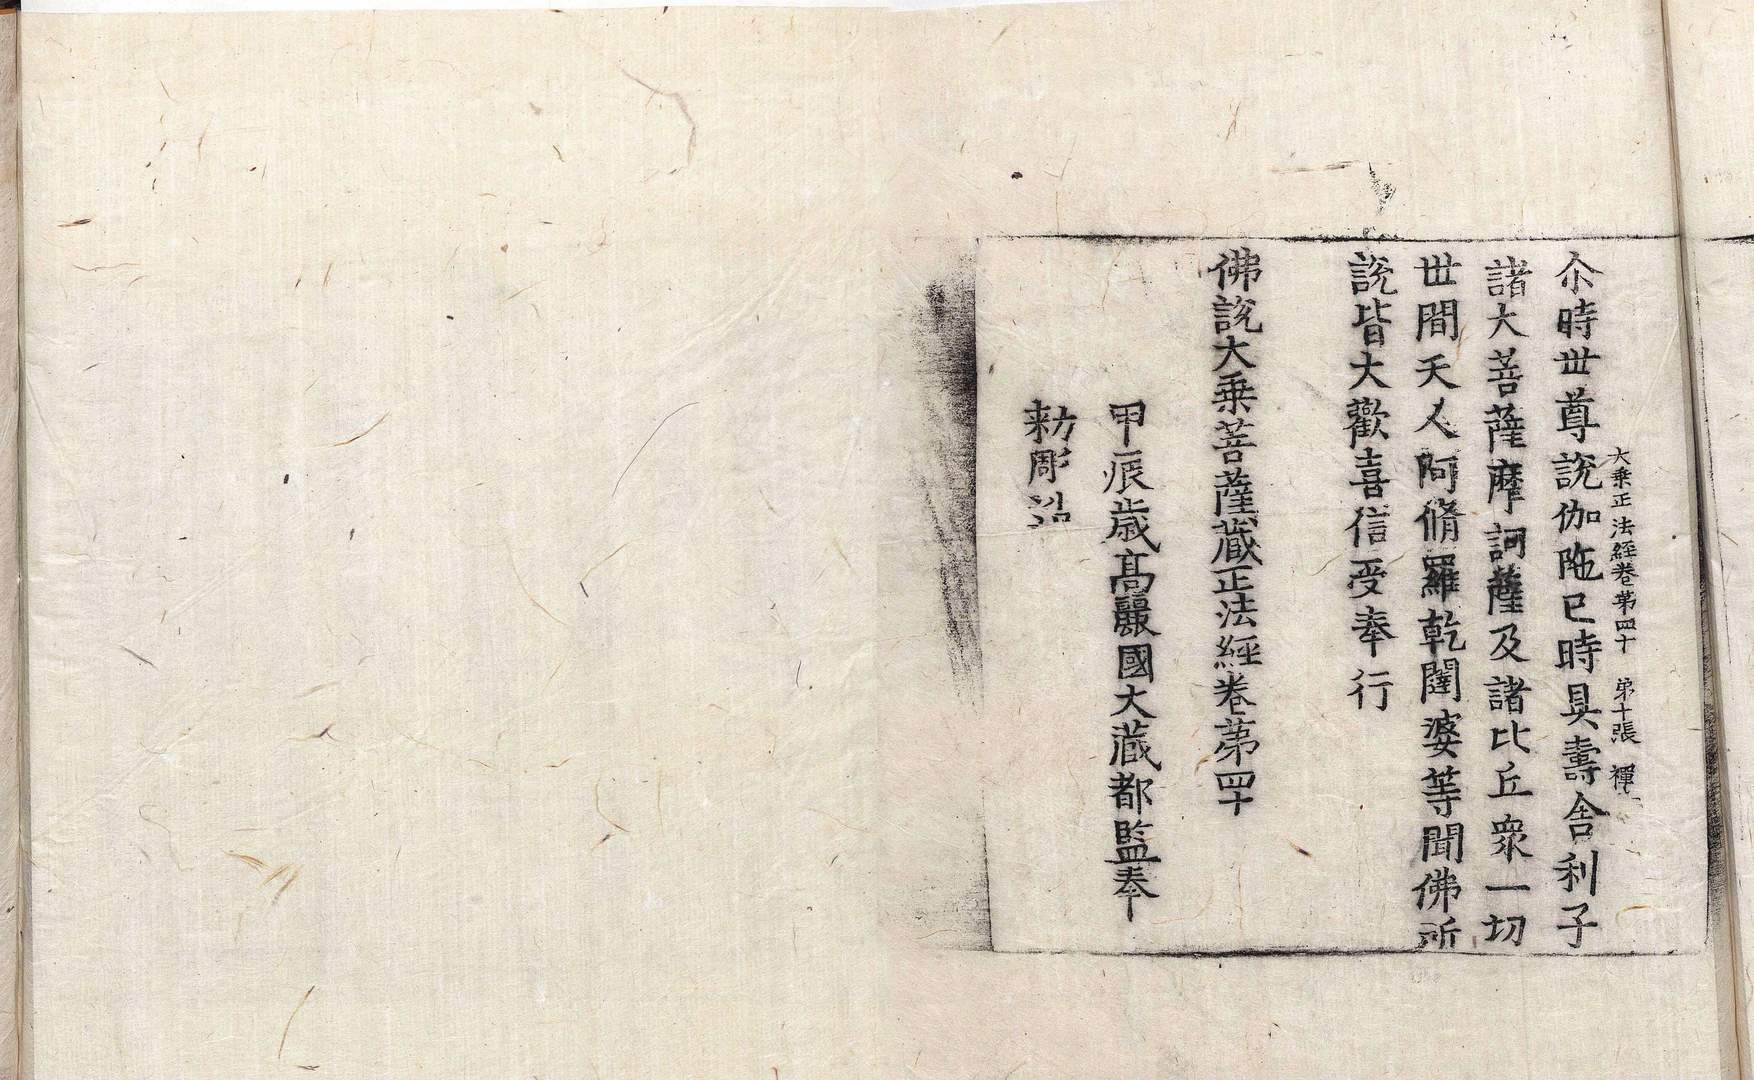 大乗正法経巻第四十 第十張 禪
尒時世尊說伽陁已時具壽舍利子
諸大菩薩摩訶薩及諸比丘衆一切
世間天人阿脩羅乾闥婆等聞佛所
說皆大歡喜信受奉行
佛說大乗菩薩藏正法經卷第四十
甲辰歳高麗國大藏都監奉
勑彫造